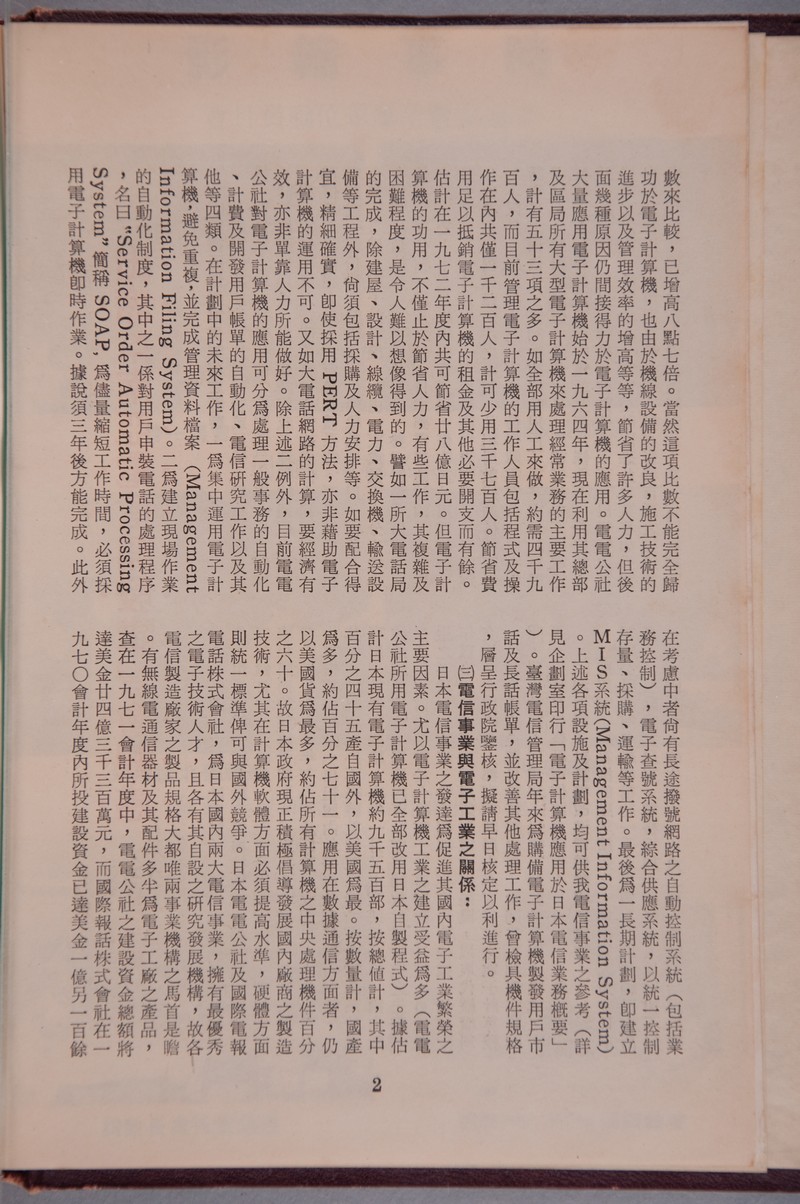 數來比較，已增高八點七倍。當然這項比數不能完全歸
功於電子計算機，也由於機線設備的改良，施工技術的
進步以及管理效率的增高等等，節省了許多人力，但後
面幾種原因仍間接得力於電子計算機的應用。電電公社
大量應用電子計算機始於一九六四年，現在利用其總部
及區局所有大型電子計算機來處理經常業務的主要工作
，計有五十三項之多。如全部用人工來做，約需四千九
百人，而目前管理電子計算機的工作人員包括程式及操
作在內共僅一千二百人，計可少用三千七百人。節省費
用足以抵銷電子計算機的租金及其他必要開支而有餘。
估計在一九七二年度內共可節省廿八億日元。但電子計
算機的功用，不僅止於節省人力，有些工作，其複雜及
困難程度，是令人難以想像得到的。譬如一所大電話局
的完成，除建屋、設計、線纜、電力、交換機、輸送設
備等工程外，尙須包括採購及人力安排等。如要配合得
宜，精細確實，卽使採用 PERT 方法，亦非藉助電子
計算機的運用不可。又如大電話網路的計算，要經濟有
效，亦非單靠人力所能做好。除上述二例外，目前電電
公社對電子計算機的應用可分爲處理一般事務的自動化
、計費及開發用戶帳單的自動化、電信研究工作以及其
他等四類。在計劃中的未來工作，一爲集中運用電子計
算機，避免重複，並完成管理資料檔案 (Management
Information Filing System)。二爲建立現場作業
的自動化制度，其中之一係對用戶申裝電話的處理程序
，名曰 “Service Order Automatic Processing
System” 簡稱 SOAP, 爲儘量縮短工作時間，必須採
用電子計算機卽時作業。據說須三年後方能完成。此外
在考慮中者尙有長途撥號網路之自動控制系統（包括業
務控制），電子查號系統，綜合供應系統，以統一控制
存量、採購、運輸等工作。最後爲一長期計劃，卽建立
ＭＩＳ系統(Management Information System)
。上述各項設施及計劃，均可供我電信事業之參考（詳
見企劃室印行「電子計算機應用於日本電信業務概要」
）。臺灣電信管理局年來爲購備電子計算機製發用戶市
話及長話帳單，並改善其他處理工作，曾檢具機件規格
，層呈行政院鑒核，擬請早日核定以利進行。
㈢電信事業與電子工業之關係：
日本電信事業之發達爲促進其國內電子工業繁榮之
主要因素。尤以電子計算機工業之建立受益爲多（電電
公社所用電子計算機已全部改用日本自製程式）。據估
計日本現有電子計算機約九千五百部，按總値計，其中
百分之四十五產自國外，以美國爲最。按數量計，國產
爲多，約佔百分之七十一。應用在數據通信方面者，仍
以美國貨爲最多，約佔所有計算機之中央處理機件百分
之六十。故日本政府現正積極倡導發展國內廠商之製造
技術，尤其在計算機軟體方面必須提高水準，硬體方面
則統一標準俾可與國外競爭。日本電電公社及國際電報
電話株式會社，爲日本國內兩大電信事業，擁有最優秀
之電子技術人才，且各有其自設之研究發展機構，故各
電信製造廠家之製品規格大都唯兩事業機構之馬首是瞻
。有無線電通信器材及其配件多半爲電子工廠之產品，
查在一九七一會計年度中，電電公社之建設資金總額將
達美金廿四億三千三百萬元，而國際報話株式會社在一
九七〇會計年度內所投建設資金已達美金一億另一百餘
2